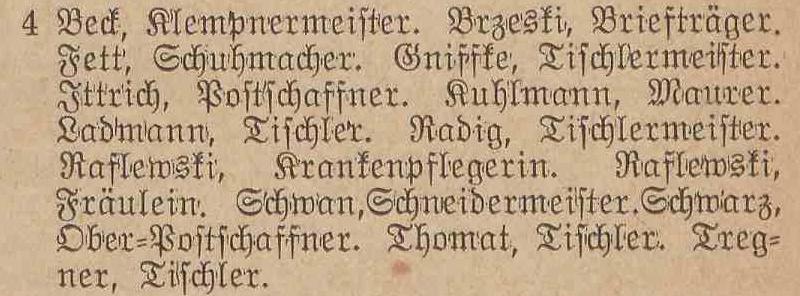 4 Beck, Klempnermeiſter. Brzeski, Briefträger.
Fett, Schuhmacher. Gniffke, Tiſchlermeiſter.
Ittrich, Poſtſchaffner. Kuhlmann, Maurer.
Ladmann, Tiſchler. Radig, Tiſchlermeiſter.
Raflewski, Krankenpflegerin. Raflewski,
Fräulein. Schwan, Schneidermeiſter. Schwarz,
Ober-Poſtſchaffner. Thomat, Tiſchler. Treg-
ner, Tiſchler.